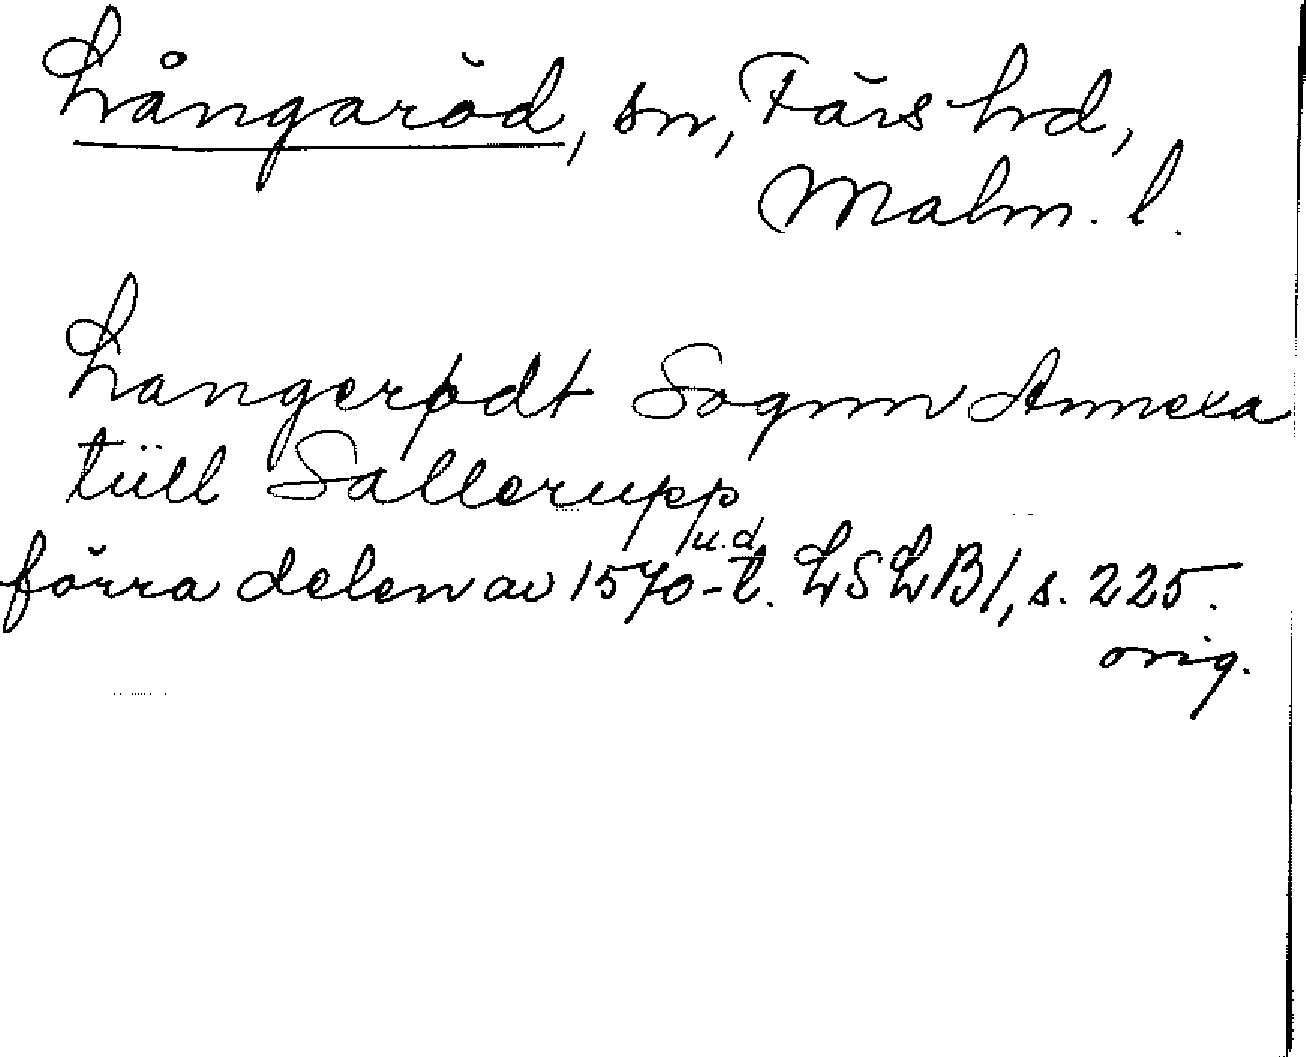 Långaröd, sn, Färs hd,
Malm. l.
Langerødt Sognn Annexa
tüll Sallerupp
u.d.
förra delen av 1570-t. LSLB1, s. 225.
orig.